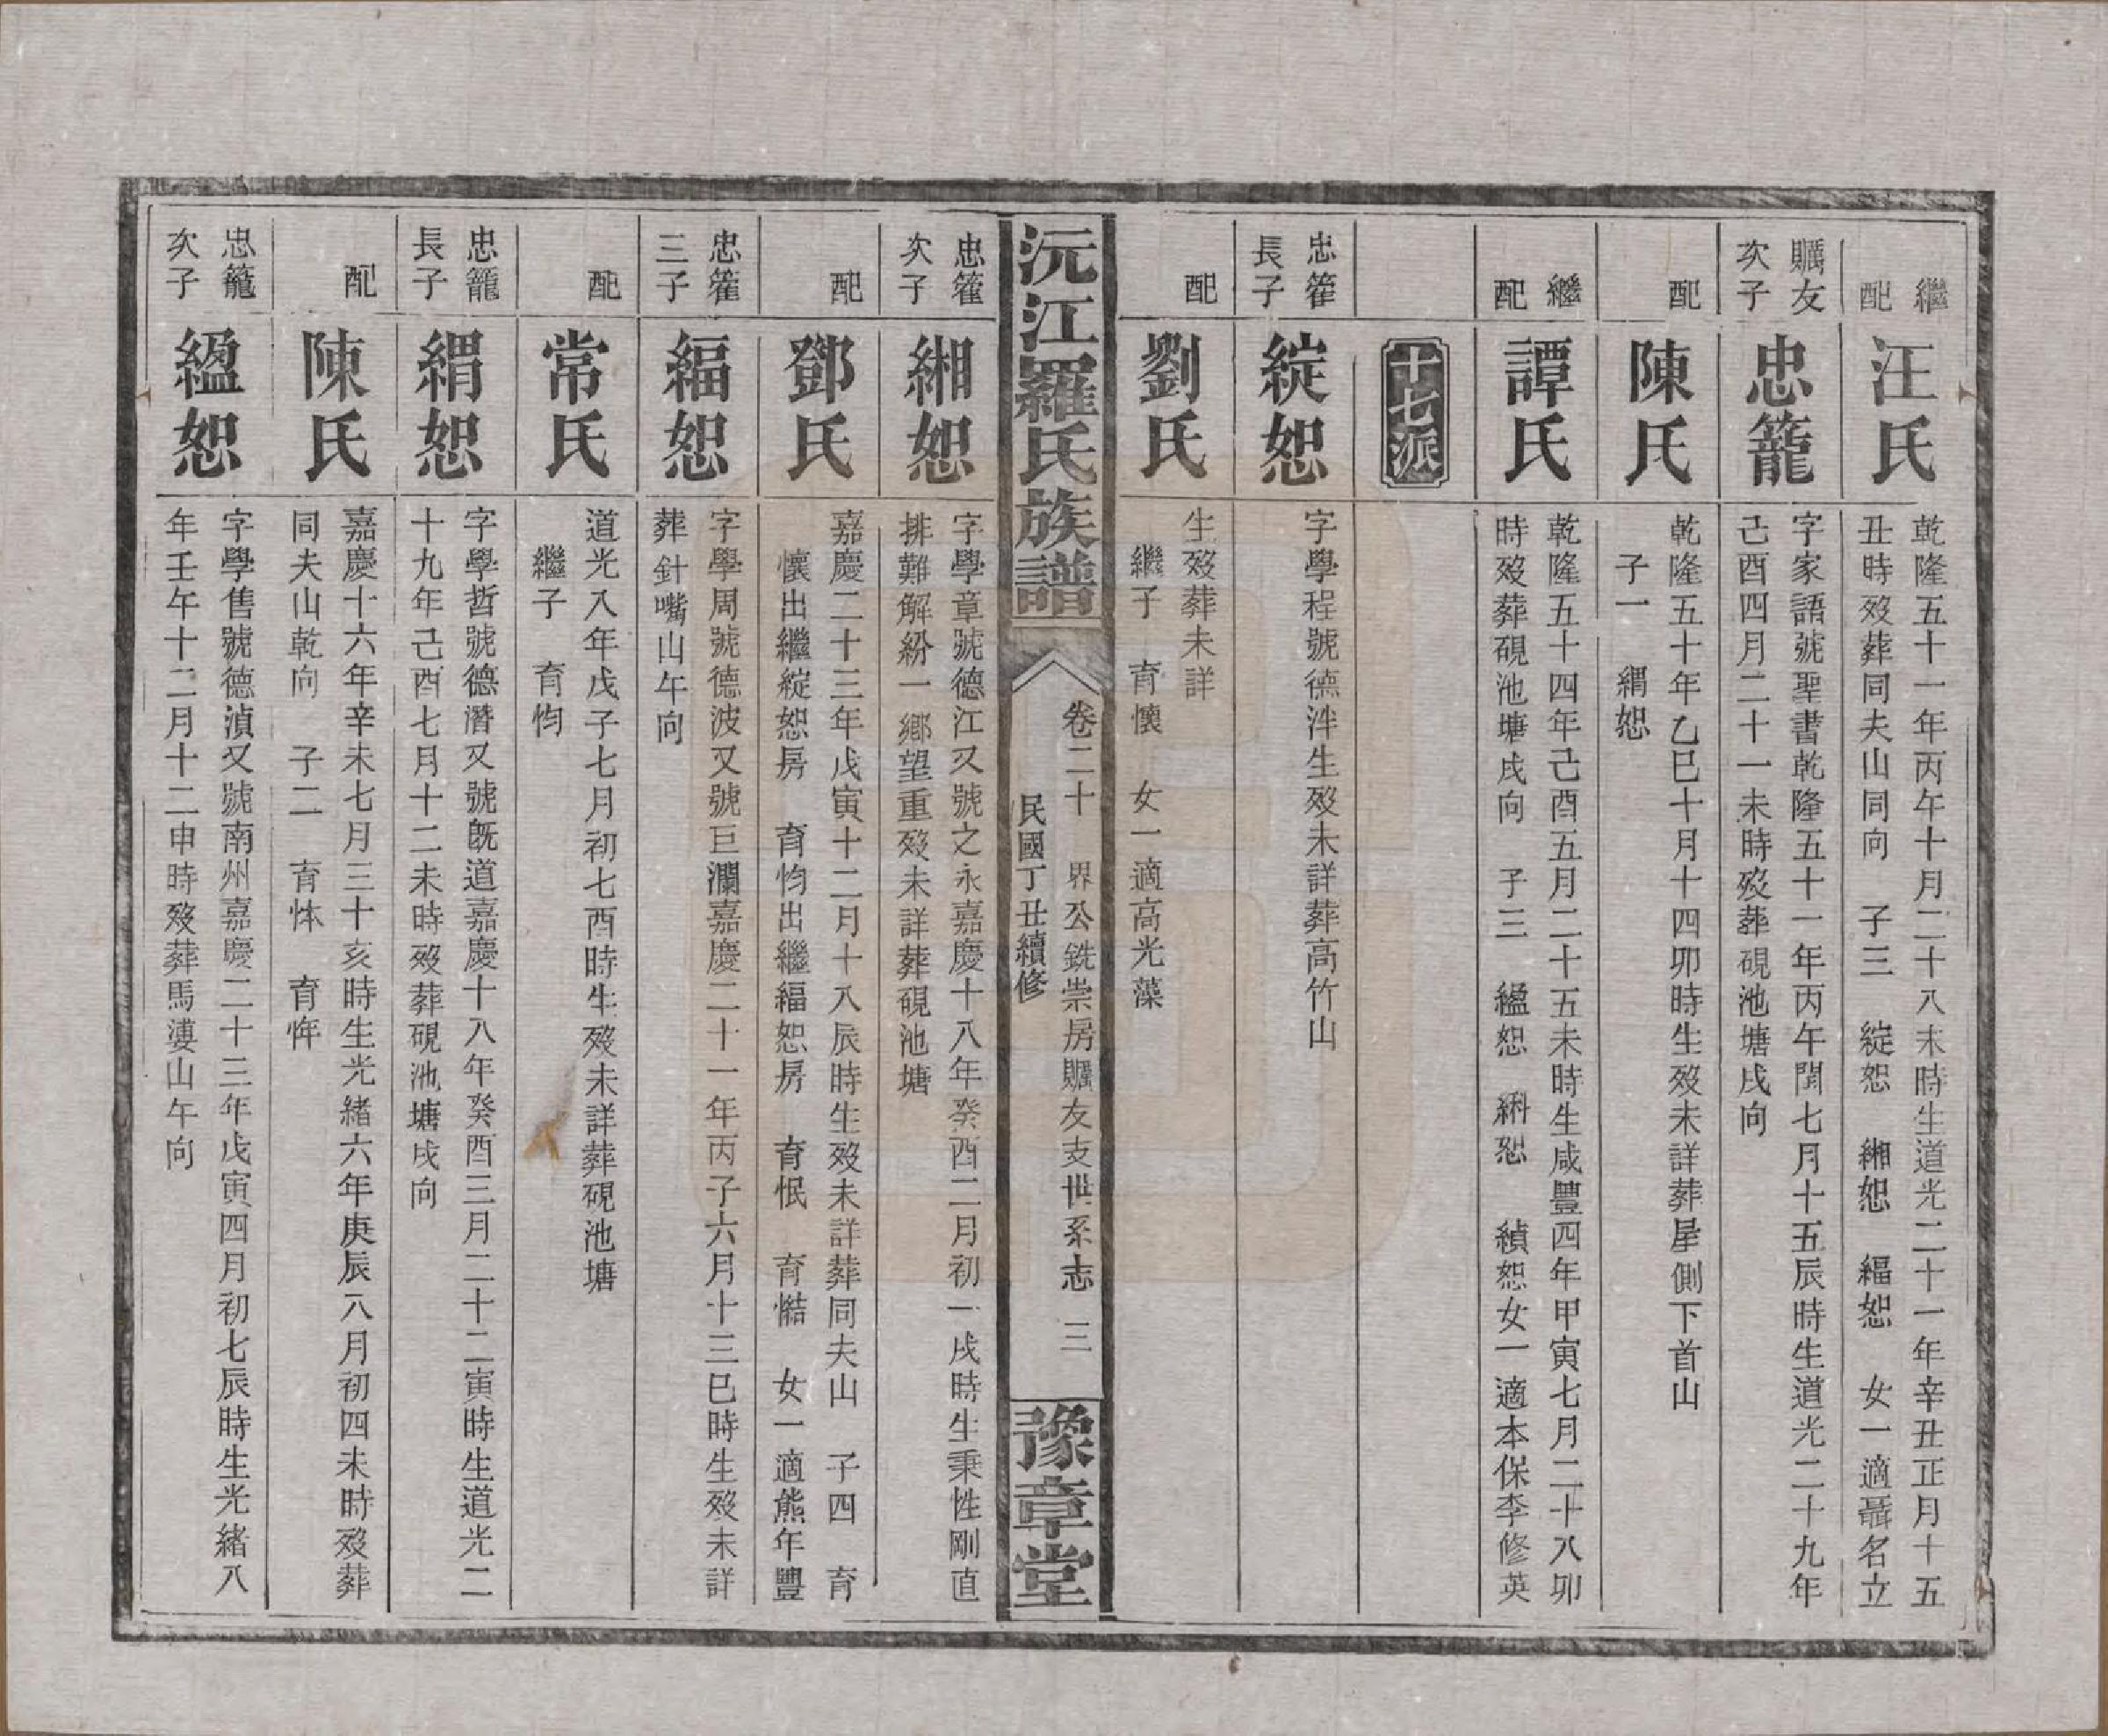 繼配
汪氏
乾隆五十一年丙午十月二十八未時生道光二十一年辛丑正月十五
丑時歿葬同夫山同向　子三　綻恕　緗恕　緼恕　女一適聶名立
賜友次子
忠籠
字家語號聖書乾隆五十一年丙午閏七月十五辰時生道光二十九年
己酉四月二十一未時歿葬硯池塘戌向
配
陳氏
乾隆五十年乙巳十月十四卯時生歿未詳葬屋側下首山
子一　緭恕
繼配
譚氏
乾隆五十四年己酉五月二十五未時生咸豐四年甲寅七月二十八卯
時歿葬硯池塘戌向　子三　緼恕　恕　縝恕女一適本保李修英
十七派
忠籊長子
綻恕
字學程號德泮生歿未詳葬高竹山
配
劉氏
生歿葬未詳
繼子　育懷　女一適高光藻
沅江羅氏族譜
卷二十　界公銑崇房賜友支世系志　三
民國丁丑續修
豫章堂
忠籊次子
緗恕
字學章號德江又號之永嘉慶十八年癸酉二月初一戌時生秉性剛直
排難解紛一鄉望重歿未詳葬硯池塘
配
鄧氏
嘉慶二十三年戊寅十二月十八辰時生歿未詳葬同夫山　子四　育
懷出繼綻恕房　育恂出繼緼恕房　育怋　育㦪　女一適熊年豐
忠籊三子
緼恕
字學周號德波又號巨瀾嘉慶二十一年丙子六月十三巳時生歿未詳
葬針嘴山午向
配
常氏
道光八年戊子七月初七酉時生歿未詳葬硯池塘
繼子　育恂
忠籠長子
緭恕
字學哲號德潛又號旣道嘉慶十八年癸酉三月二十二寅時生道光二
十九年己酉七月十二未時歿葬硯池塘戌向
配
陳氏
嘉慶十六年辛未七月三十亥時生光緒六年庚辰八月初四未時歿葬
同夫山乾向　子二　育㤓　育恈
忠籠次子
緼恕
字學售號德湞又號南州嘉慶二十三年戊寅四月初七辰時生光緒八
年壬午十二月十二申時歿葬馬漊山午向